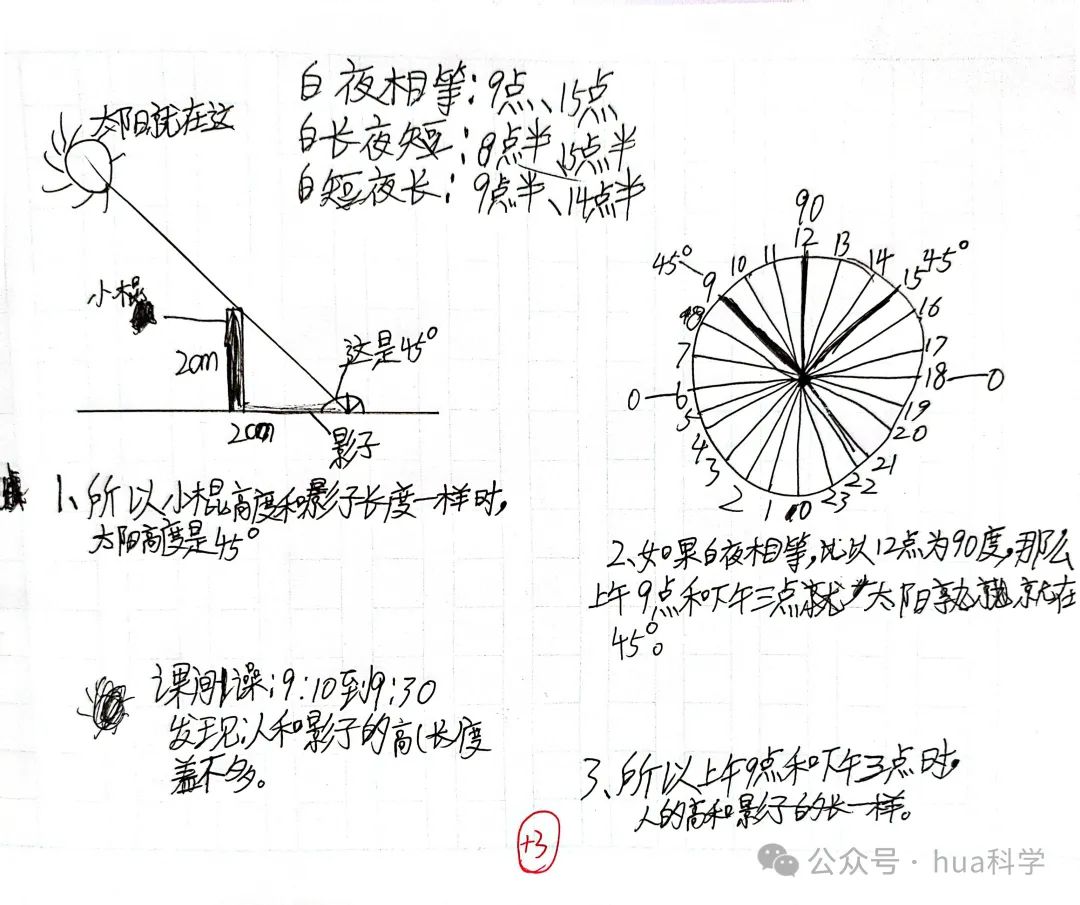 白夜相等:9点、15点
白长夜短:8点半、15点半
白短夜长:9点半、14点半
太阳就在这
小棍
2cm
这是45°
2cm
影子
1、所以小棍高度和影子长度一样时,
太阳高度是45°
课间操:9:10到9:30
发现:人和影子的高(长)度
差不多。
90
12
11
13
10
14
45°
9
15
45°
8
16
7
17
0
6
18
0
5
19
4
20
3
21
2
22
1
0
23
2、如果白夜相等,比以12点为90度,那么
上午9点和下午三点就 太阳高 就在
45°。
3、所以上午9点和下午3点时,
人的高和影子的长一样。
+3
公众号·hua科学